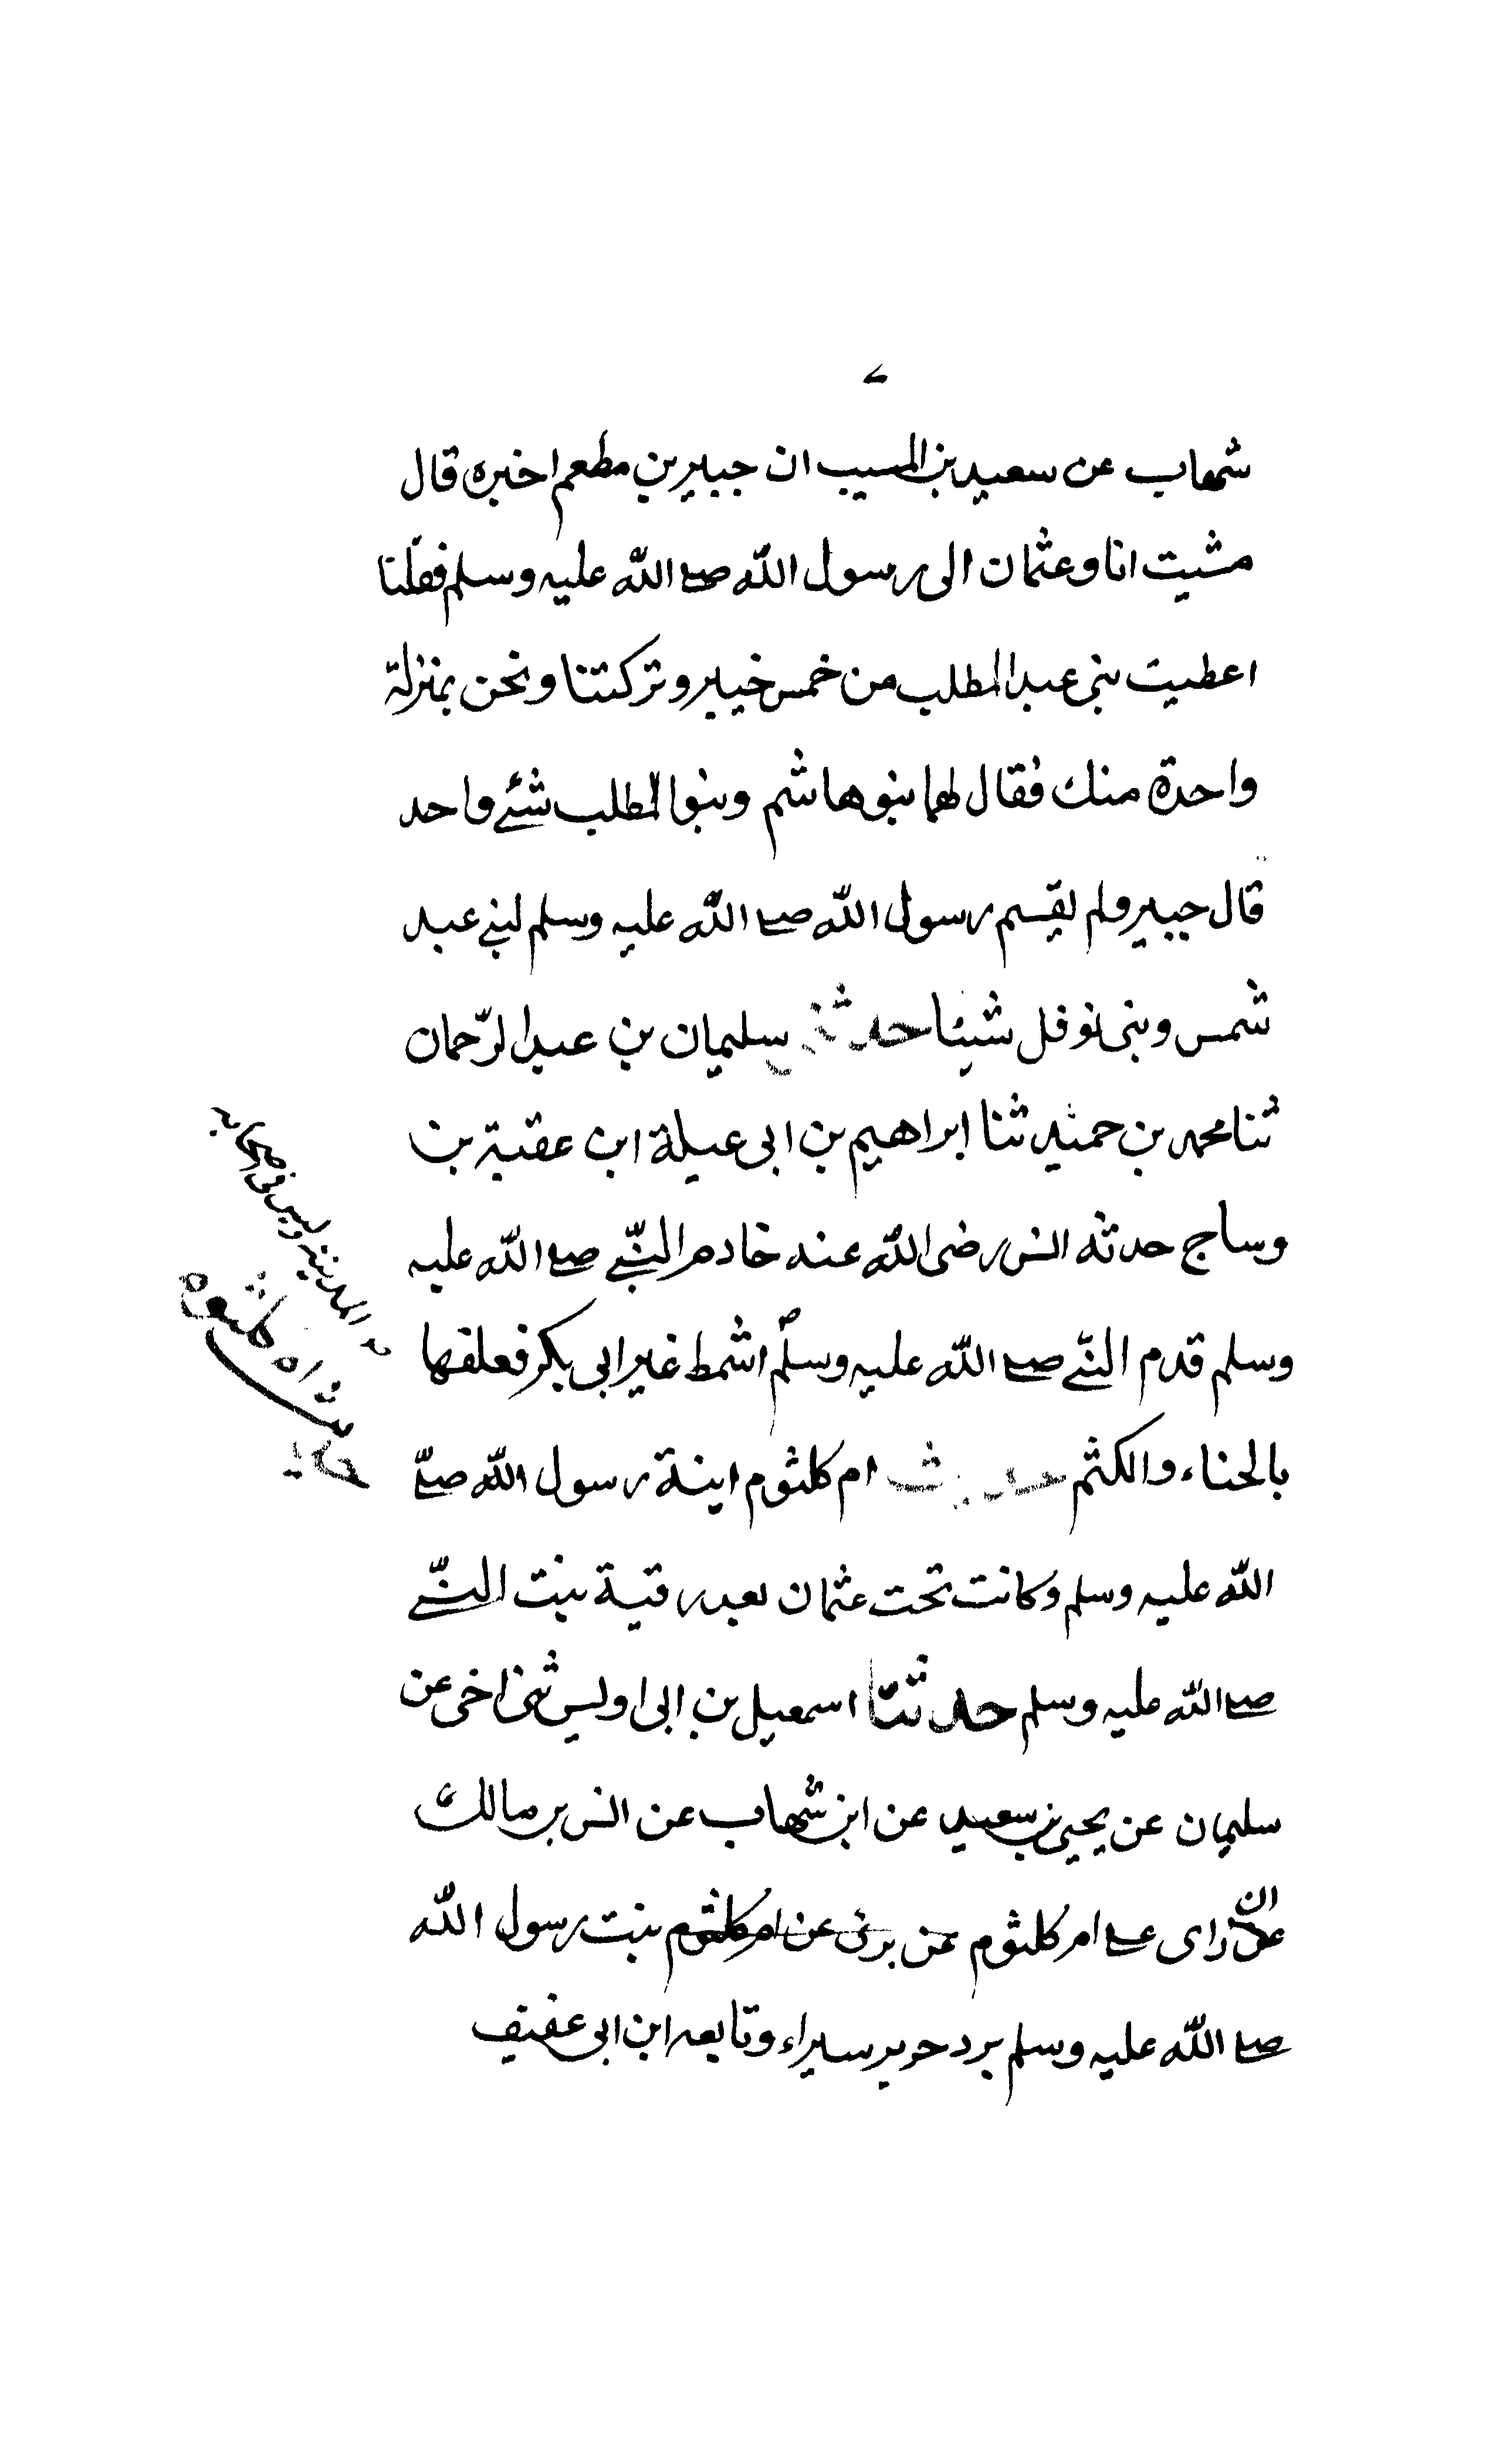 شهاب عن سعيد بن المسيب ان جبير بن مطعم اخبره قال
مشيت انا وعثمان الى رسول الله صلے الله عليه وسلم فقلنا
اعطيت بنى عبد المطلب من خمس خيبر وتركتنا ونحن بمنزلة
واحدة منك فقال لهما بنو هاشم وبنو المطلب شئے واحد
قال جبير ولم يقسم رسول الله صلے الله عليه وسلم لبنے عبد
شمس وبنى نوفل شيئا حدثنى سليمان بن عبد الرّحمان
ثنا محمد بن حميد ثنا ابراهيم بن ابى عبلة ان عقبة بن
وساج حدثه انس رضى الله عنه خادم النبّے صلے الله عليه
وسلم قدم النبّے صلے الله عليه وسلّم اشمط غير ابى بكر فعلفها
بالحناء والكتم حديث ام كلثوم ابنة رسول الله صلےّ
الله عليه وسلم وكانت تحت عثمان بعد رقية بنت النبّے
صلے الله عليه وسلم حدثنا اسمعيل بن ابى اويس ثنى اخى عن
سليمان عن يحيى بن سعيد عن ابن شهاب عن انس بن مالك
ان
راى علے ام كلثوم عن ام كلثوم بنت رسول الله
صلے الله عليه وسلم برد حرير سيراء وتابعه ابن ابى عفيف